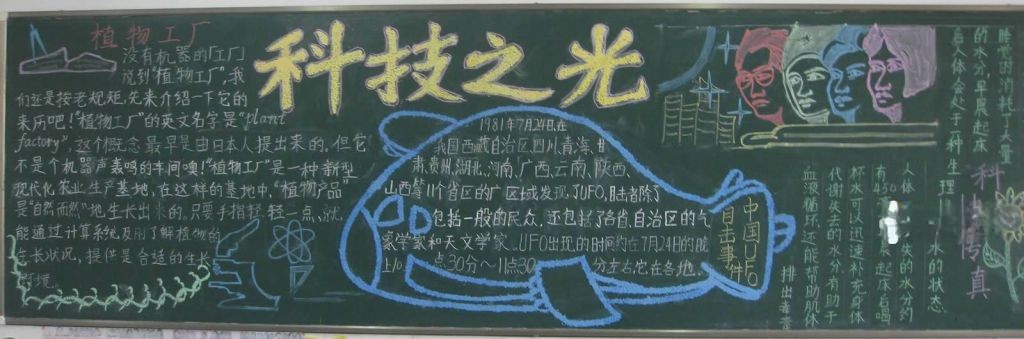 科技之光
植物工厂
没有机器的工厂
说到"植物工厂",我
们还是按老规矩,先来介绍一下它的
来历吧!"植物工厂"的英文名字是"plant
factory",这个概念最早是由日本人提出来的,但它
不是个机器声轰鸣的车间噢!"植物工厂"是一种新型
现代化农业生产基地,在这样的基地中,"植物产品
是"自然而然"地生长出来的。只要手指轻轻一点、就
能通过计算系统及时了解植物的
生长状况,提供最合适的生长
环境。
1981年7月24日,在
我国西藏自治区四川,青海,甘
肃,贵州,湖北,河南,广西,云南,陕西、
山西等11个省区的广区域发现了UFO,目击者除了
包括一般的民众,还包括了各省,自治区的气
象学家和天文学家。UFO出现的时间约在7月24日的晚
上10点30分~11点30分左右,它在各地。
中国UFO
目击事件
睡觉时消耗了大量
的水分,早晨起床
后人体会处于一种生理
水的状态
人体
失的水分约
有450
来起床后喝
杯水可以迅速补充身体
代谢失去的水分,有助于
血液循环还能帮助肌体
排出毒素
科技传真